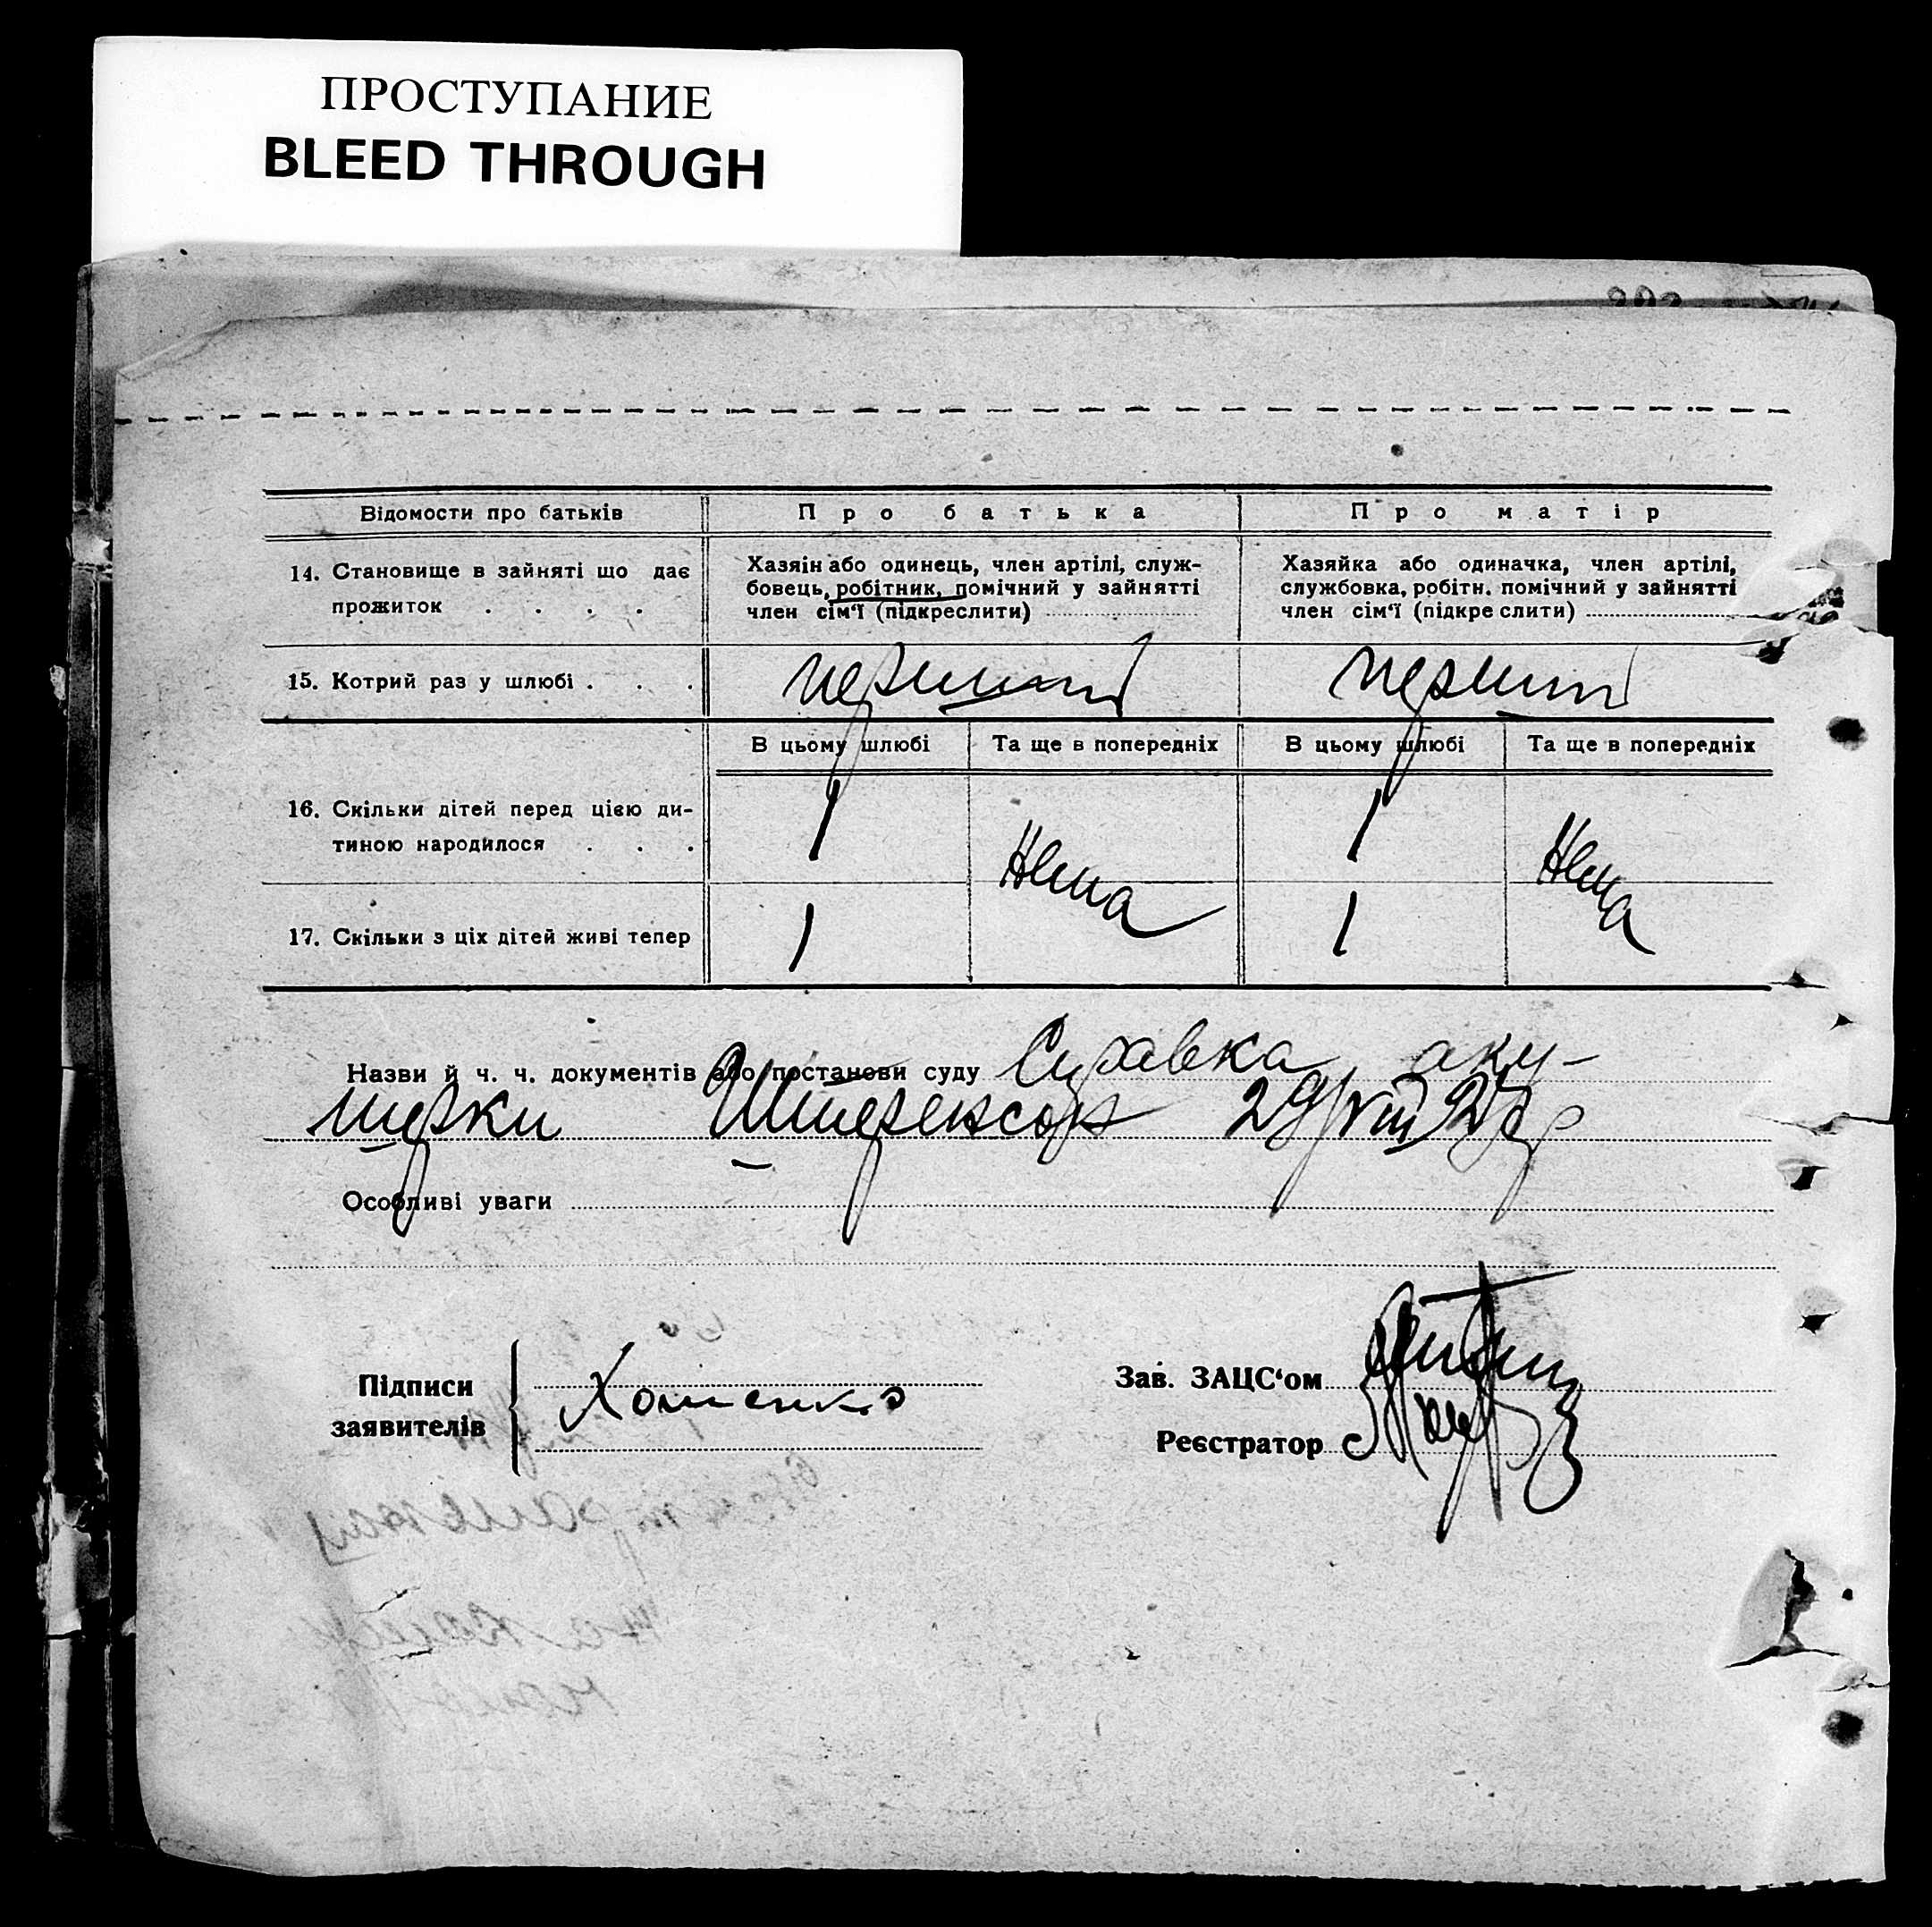 ПРОСТУПАНИЕ
BLEED THROUGH
Відомости про батьків
Про батька
Про матір
14. Становище в зайняті що дає
прожиток . . . .
Хазяін або одинець, член артілі, служ-
бовець, робітник, помічний у зайнятті
член сім‘ї (підкреслити)
Хазяйка або одиначка, член артілі,
службовка, робітн. помічний у зайнятті
член сім‘ї (підкре слити)
15. Котрий раз у шлюбі . . .
перший
перший
В цьому шлюбі
Та ще в попередніх
В цьому шлюбі
Та ще в попередніх
16. Скільки дітей перед цією ди-
тиною народилося . . .
1
Нема
1
Нема
17. Скільки з ціх дітей живі тепер
1
1
Назви й ч. ч. документів або постанови суду Справка аку-
шерки 29/VIII 27 р
Особливі уваги
Підписи
заявителів
Хоменко
Зав. ЗАЦС‘ом
Реєстратор